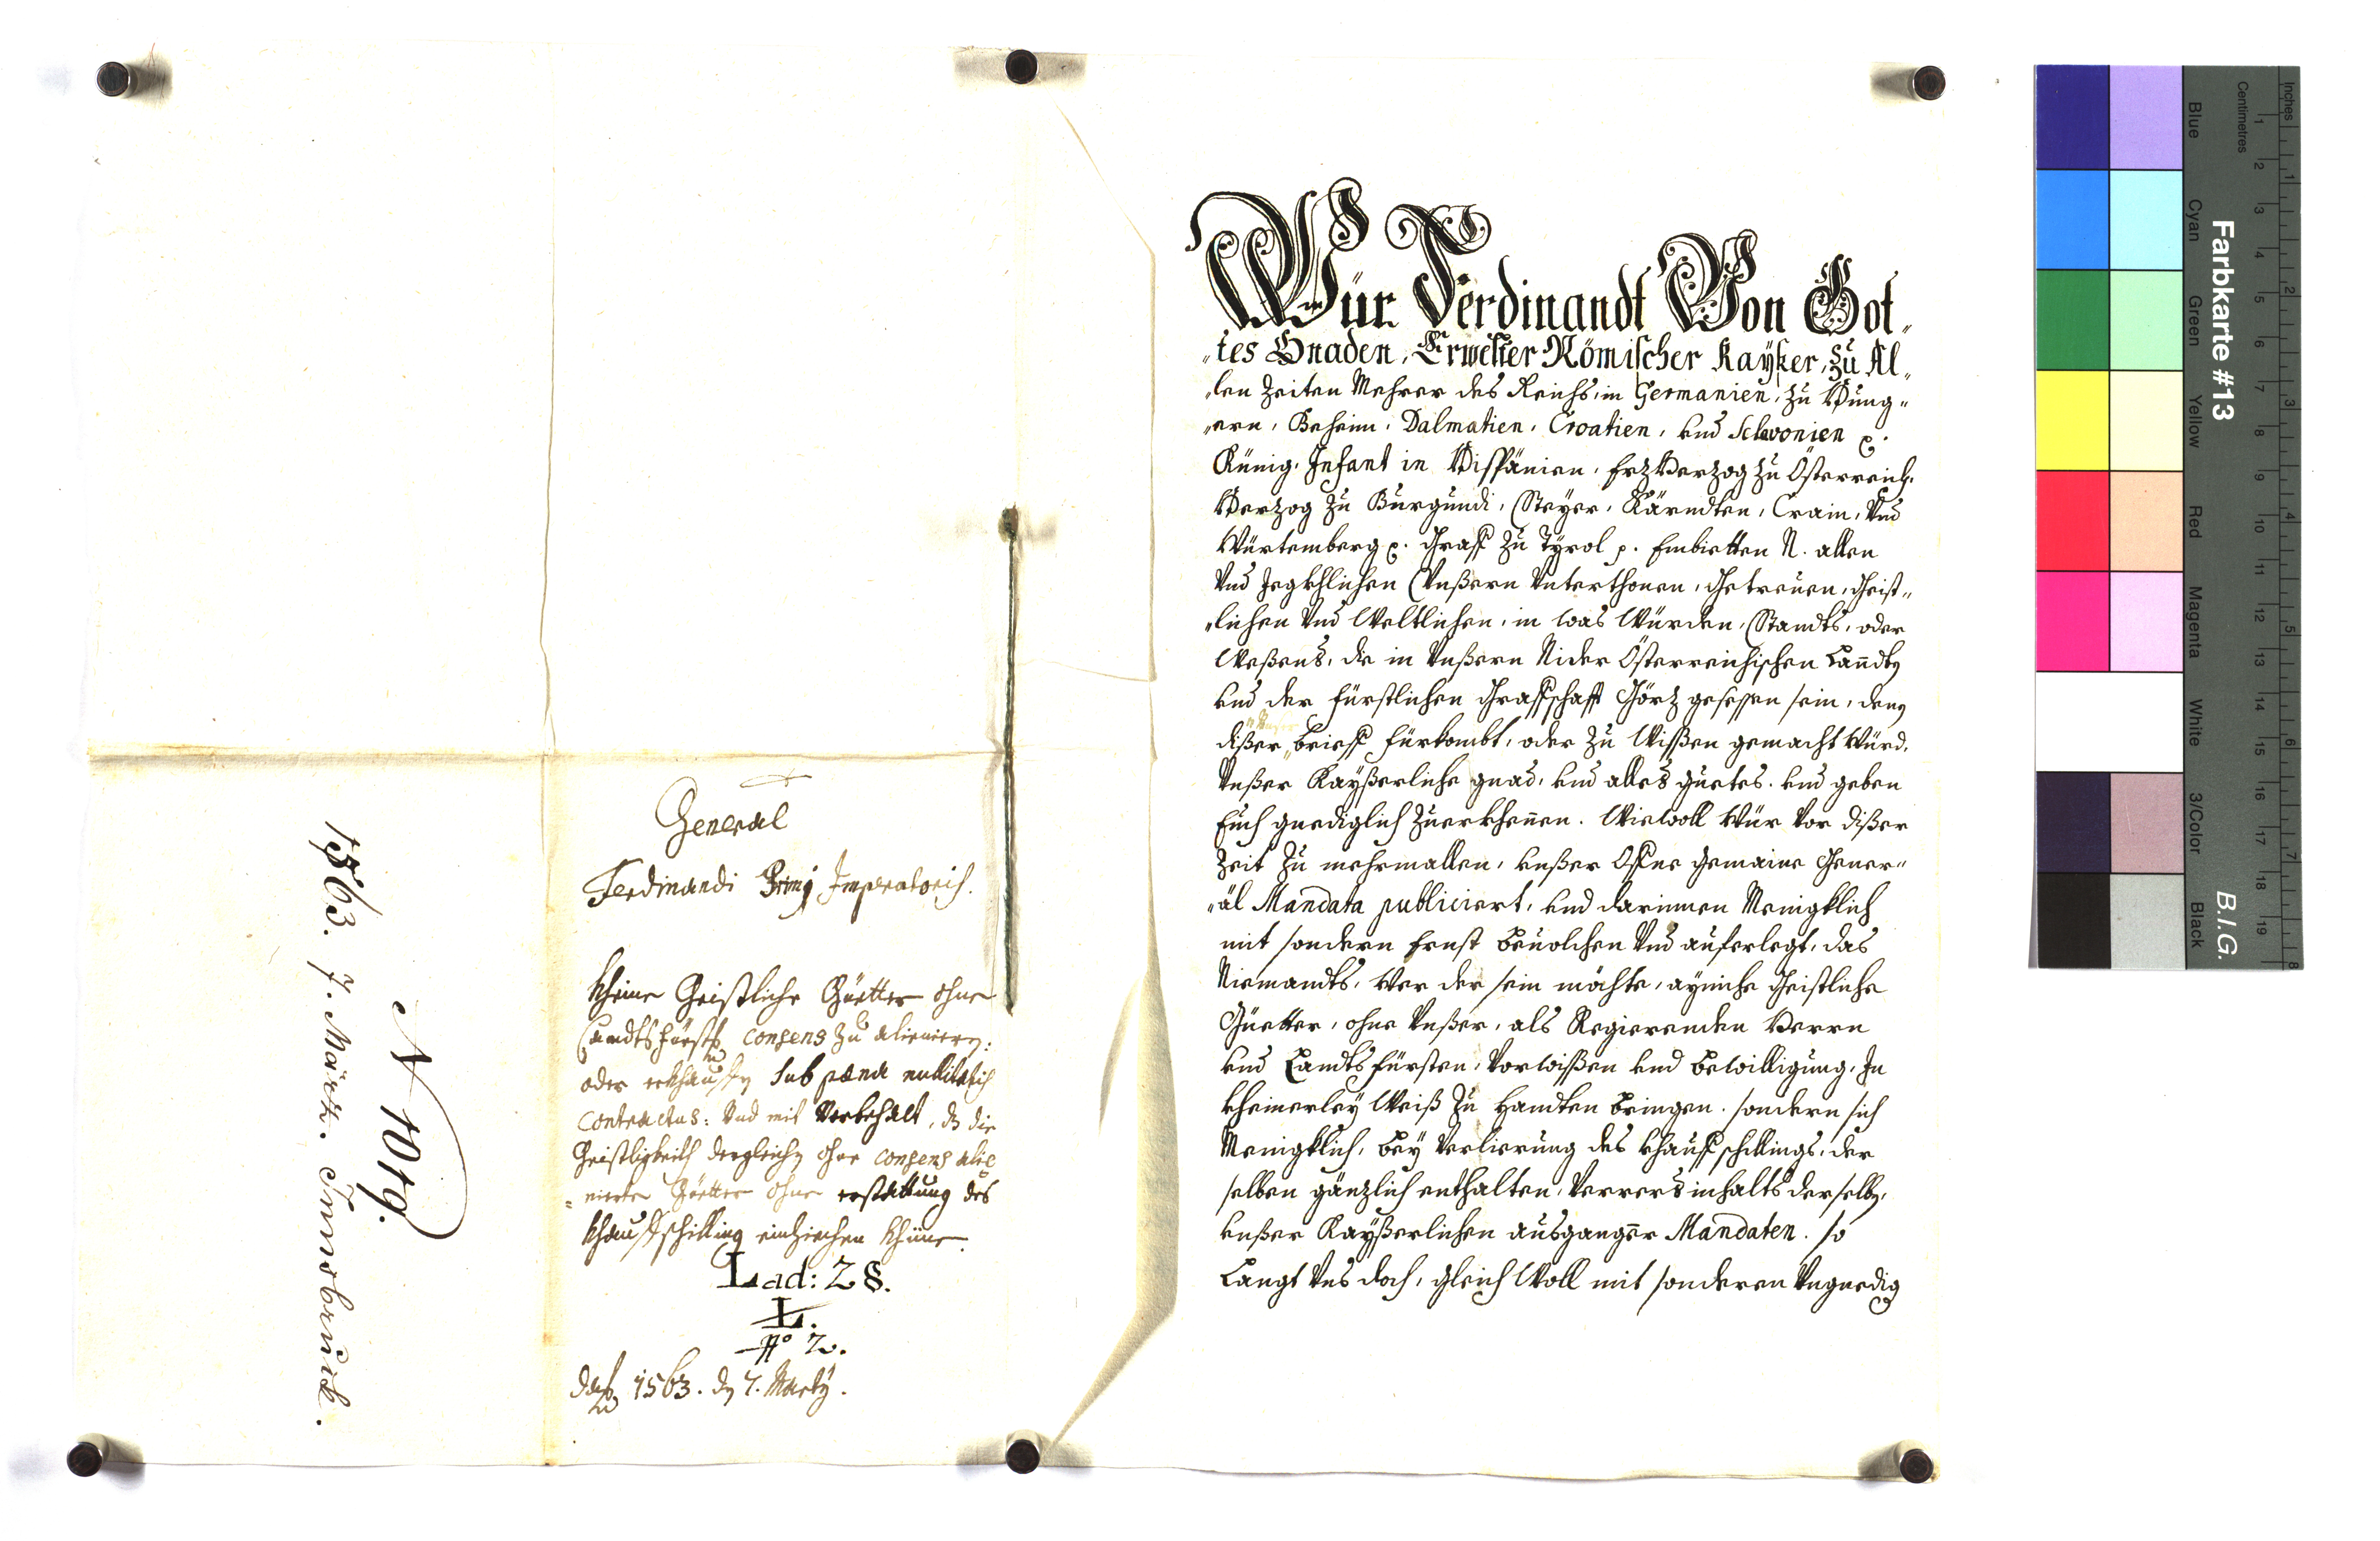 General
Ferdinandi Primj Imperatoris.
Kheine Geistliche Güetter ohne
Landtsfürstl. consens zu alieniern:
oder erkhauffen sub pæna nullitatis
contractus: Vnd mit Vorbehalt, dz die
Geistligkeith dergleichen ohne consens alie
=nierte Güetter ohne erstattung des
khauffschilling einziechen khüne.
Lad: Z 8.
L.
No 2.
1563. den 7. Marty.
N 1019.
1563. 7. März. Innsbruck.
Wür Ferdinandt Von Got„
„tes Gnaden, Erwelter Römischer Kayßer, zu Al„
„len Zeiten Mehrer des Reichs, in Germanien, zu Hung„
„ern, Beheim, Dalmatien, Croatien, vnd Sclavonien
Künig, Infant in Hispänien, Erzherzog zu Österreich,
Herzog zu Burgundi, Steyer, Kärndten, Crain, Vnd
Würtemberg. Graff zu Tyrol p. Embietten N. allen
Vnd Jegkhlichen Vnßern Vnterthonen, Getreuen, Geist„
„lichen Vnd Weltlichen, in was Würden, Standts, oder
Weßens, die in Vnßern Nider Österreichischen Landten
vnd der fürstlichen Graffschafft Görz gesessen sein, denen
dißer „Vnser„ brieff fürkombt, oder zu Wißen gemacht Würd,
Vnßer Kayßerliche gnad, vnd alles guetes. vnd geben
Euch gnediglich zuerkhennen. Wiewoll Wür Vor dißer
Zeit zu mehrmallen, vnßer Offne gemaine Gener„
„äl Mandata publiciert, vnd darinnen Menigklich
mit sondern Ernst beuolchen Vnd auferlegt, das
Niemandts, Wer der sein möchte, ayniche Geistliche
Güetter, ohne Vnßer, als Regierenden Herrn
vnd Landtsfürsten, Vorwißen vnd bewilligung, In
kheinerley Weiß zu Handten bringen. sondern sich
Menigklich, bey Verlierung des khauffschillings, der
selben gänzlich enthalten, Verrers inhalts derselben,
vnßer Kayßerlichen ausganger Mandaten. so
Langt Vns doch, gleich Woll mit sonderen Vngnedig
Farbkarte #13
B.I.G.
Inches
Centimetres
Blue
Cyan
Green
Yellow
Red
Magenta
White
3/Color
Black
1 2 3 4 5 6 7 8 9 10 11 12 13 14 15 16 17 18 19
1 2 3 4 5 6 7 8